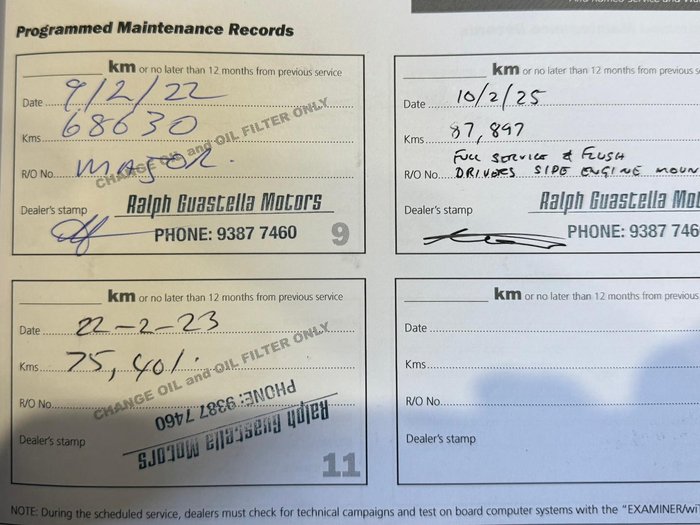 Programmed Maintenance Records
km or no later than 12 months from previous service
Date 9/2/22
Kms 68630
CHANGE OIL and OIL FILTER ONLY
R/O No. MAJOR.
Dealer's stamp Ralph Guastella Motors
PHONE: 9387 7460
9
km or no later than 12 months from previous
Date 10/2/25
Kms 87,897
FULL SERVICE & FLUSH
R/O No. DRIVERS SIDE ENGINE MOUN
Dealer's stamp Ralph Guastella Mot
PHONE: 9387 746
km or no later than 12 months from previous service
Date 22-2-23
Kms 75,401.
CHANGE OIL and OIL FILTER ONLY
R/O No.
Dealer's stamp Ralph Guastella Motors
PHONE: 9387 7460
11
km or no later than 12 months from previous
Date
Kms.
R/O No.
Dealer's stamp
NOTE: During the scheduled service, dealers must check for technical campaigns and test on board computer systems with the "EXAMINER